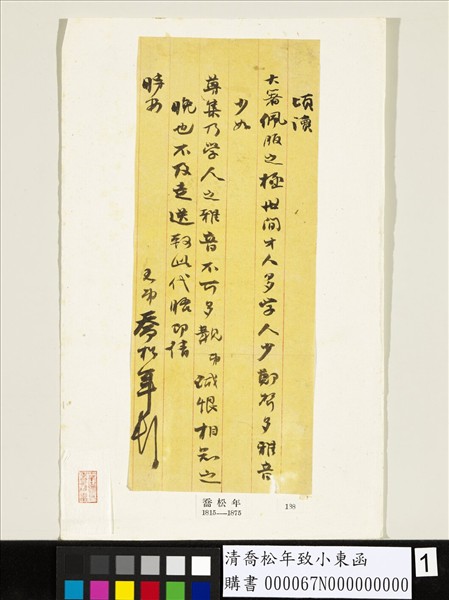 頃讀
大著佩服之極世間才人多學人少鄭聲多雅音
少如
尊集乃學人之雅音不可多覯弟誠恨相知之
晚也不及走送耑此代晤即請
時安
弟喬松年頓
喬松年
1815——1875
138
清喬松年致小東函
購書 000067N000000000
1